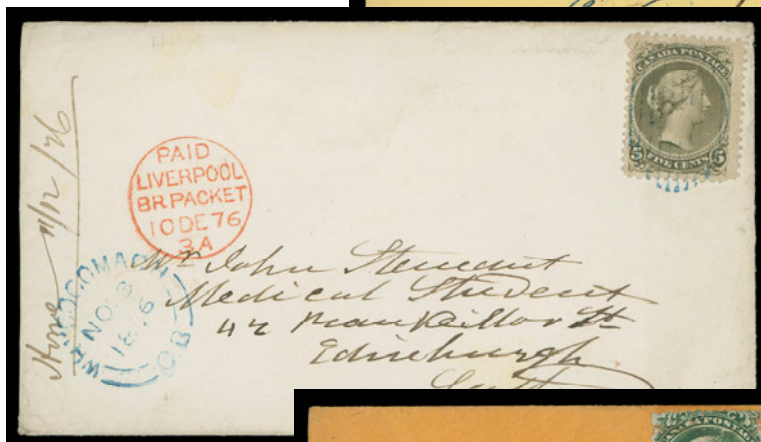 CANADA POSTAGE
5 5
FIVE CENTS
PAID
LIVERPOOL
BR PACKET
10 DE 76
3A
Home 11/12/76
NO
Q.B
Mr John Stewart
Medical Student
42 Rankeillor St
Edinburgh